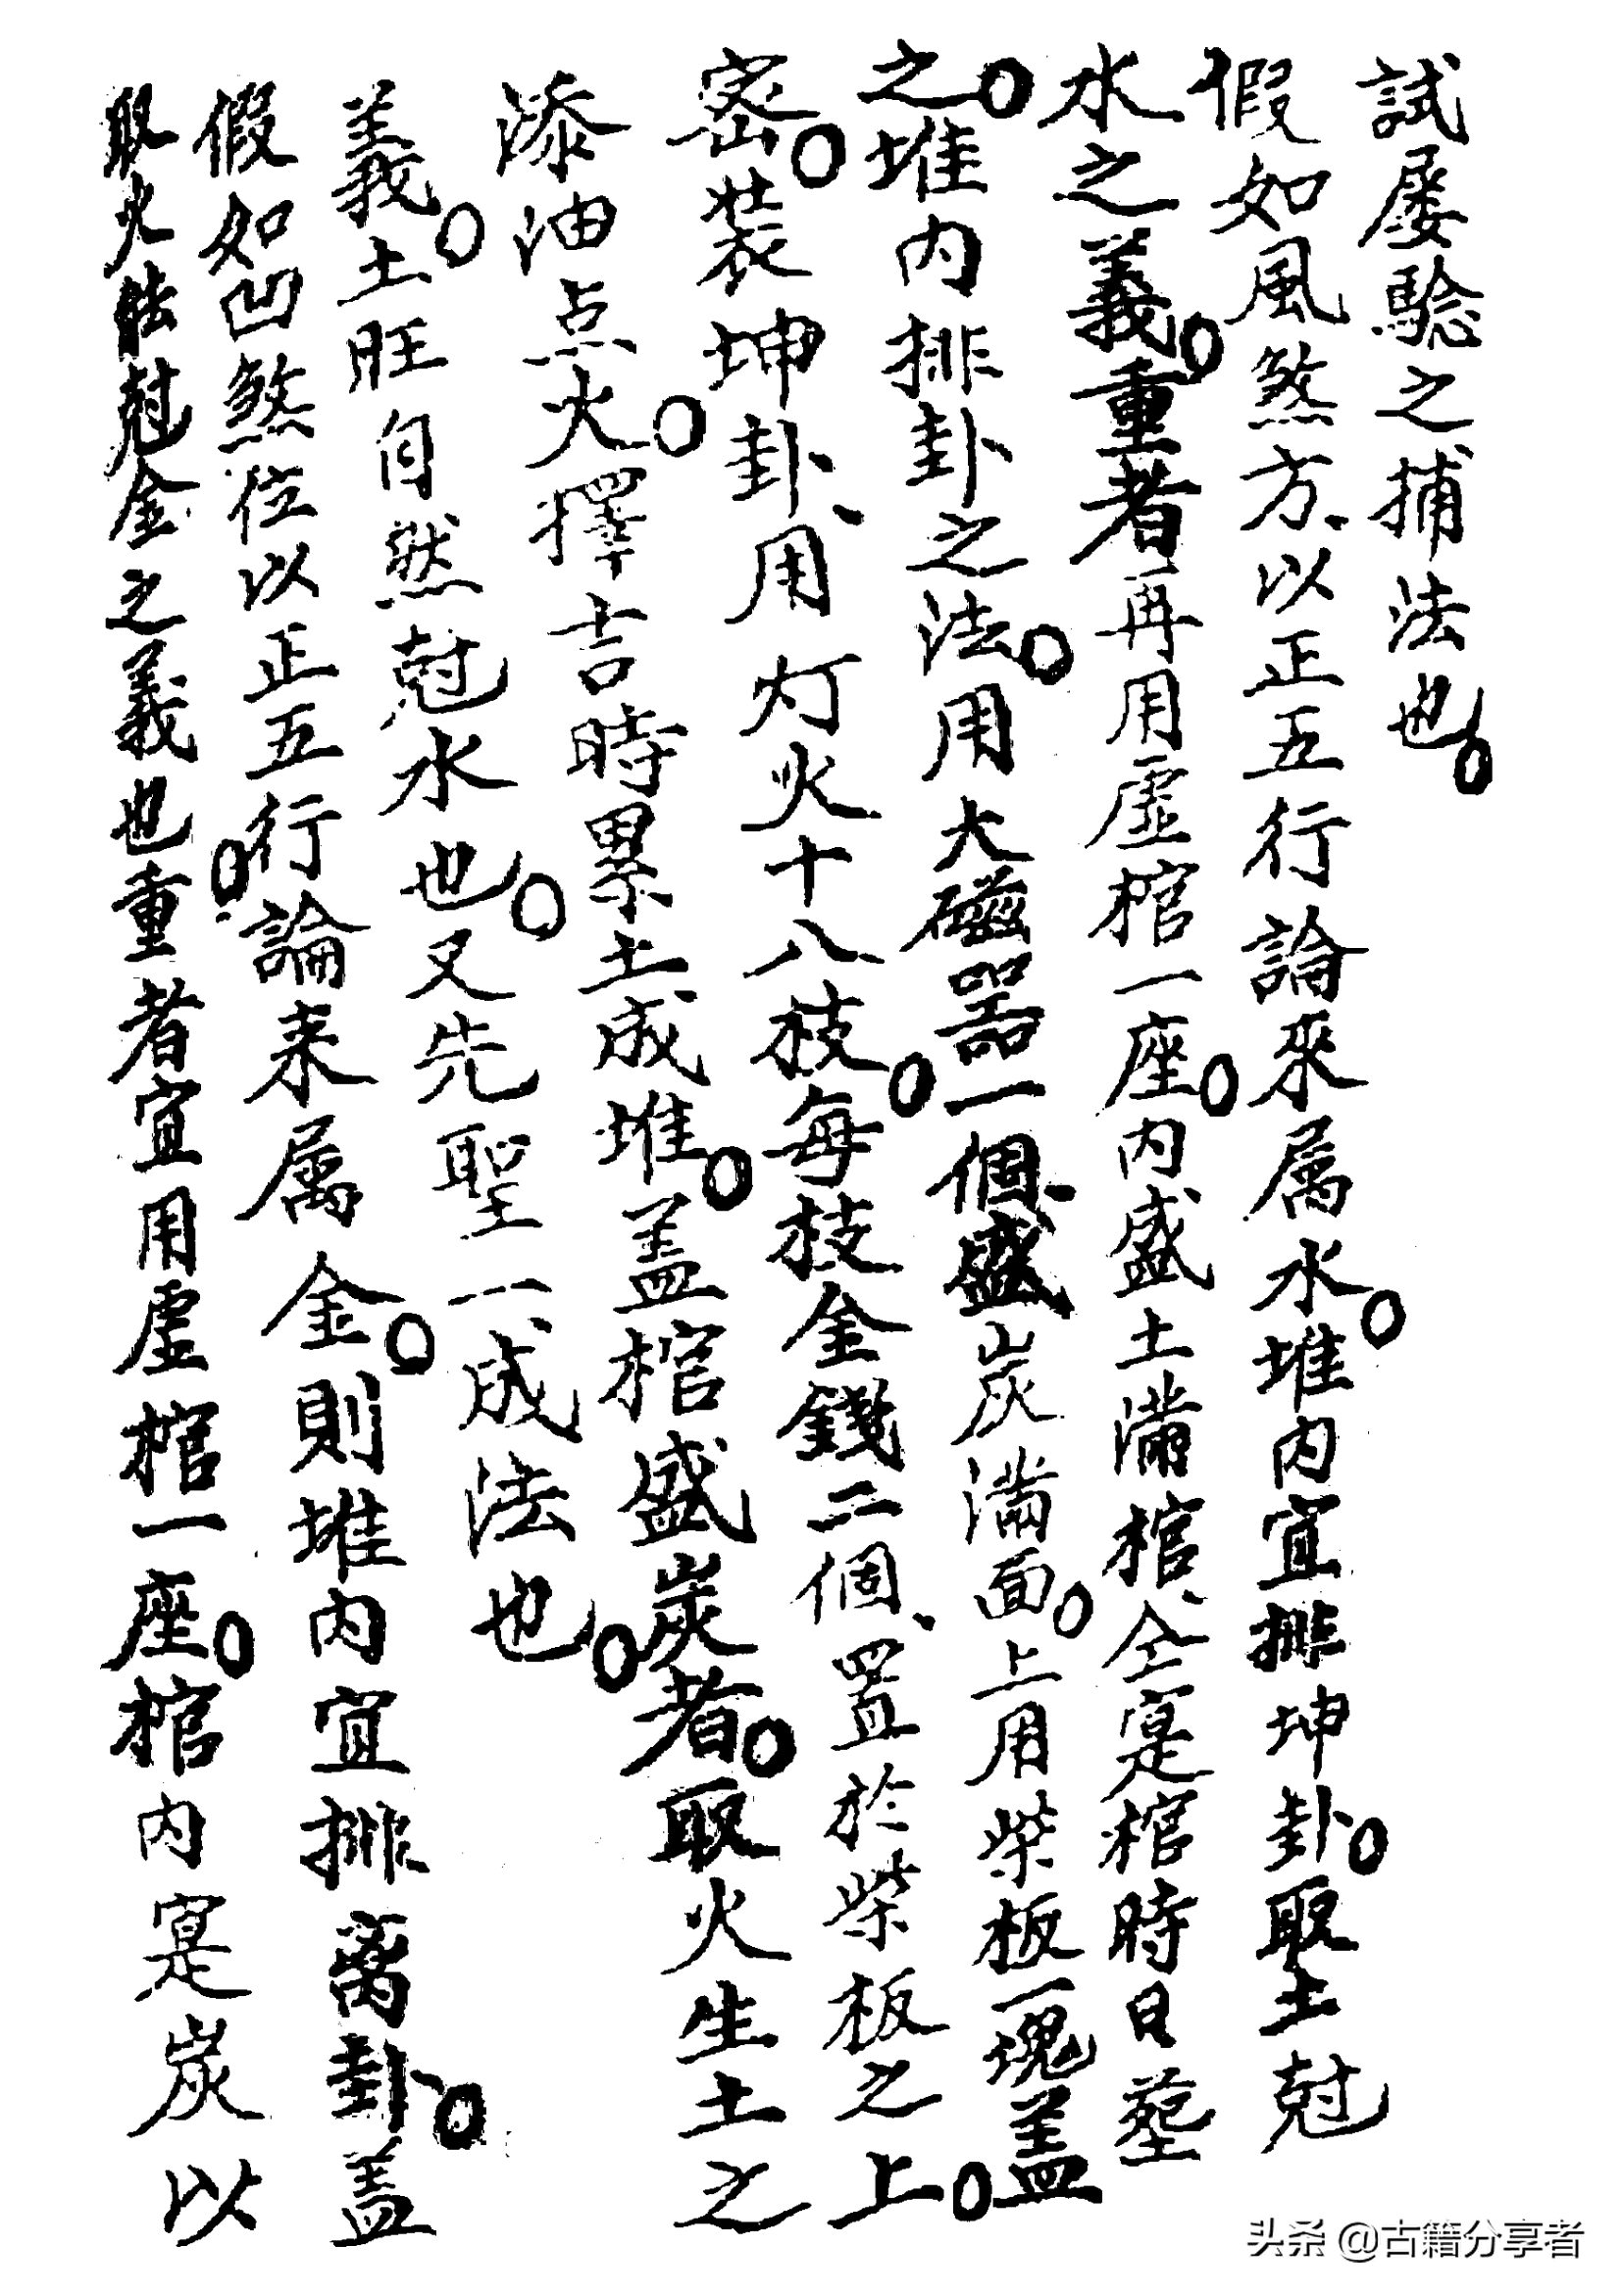 試屡騐之捕法也。
假如風煞方、以正五行論來属水。堆内宜排坤卦。取土尅
水之義。重者再用虚棺一座。内盛土滿棺、全寔棺時日塟
之。堆内排卦之法。用大磁噐一個、盛炭滿面。上用柴板一塊盖
密。装坤卦、用灯火十八枝。每枝金錢二個、置於柴板之上。
添油点火。擇吉時累土成堆。盖棺盛炭者。取火生土之
義。土旺自然尅水也。又先聖一成法也。
假如凹煞位以正五行論来属金。則堆内宜排离卦。盖
取火能尅金之義也。重者宜用虚棺一座。棺内寔炭以
头条 @古籍分享者